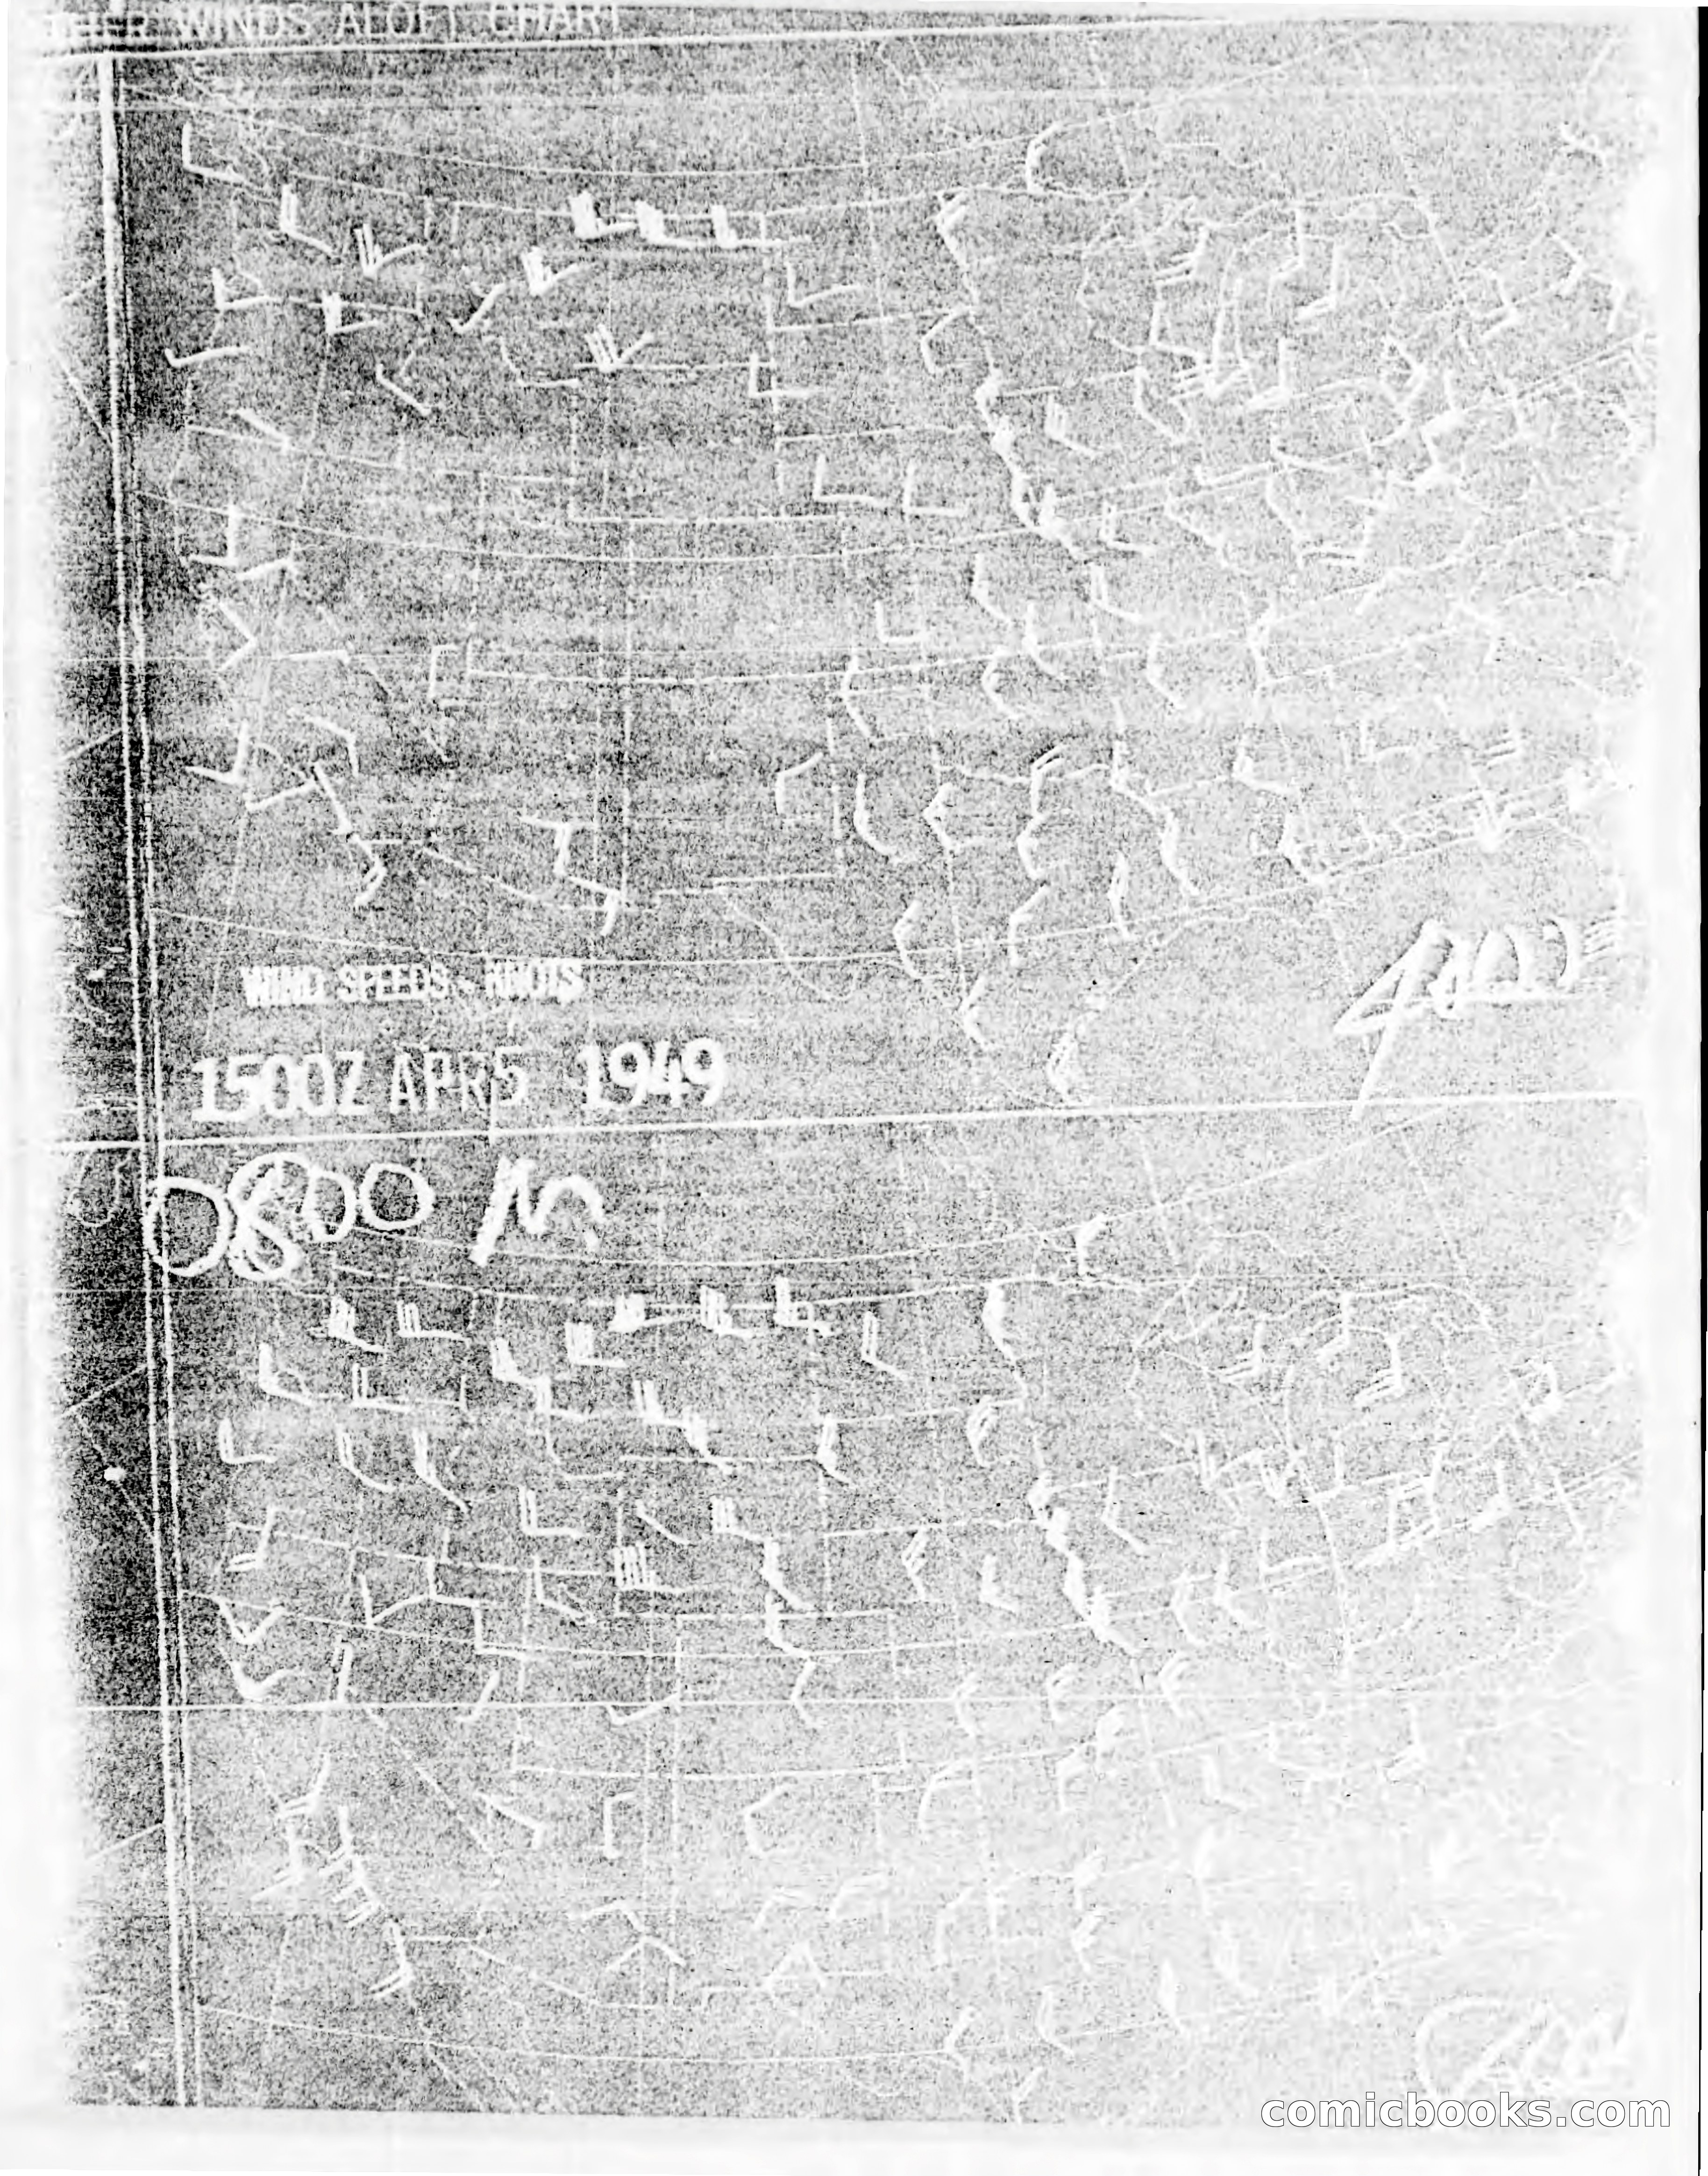 WINDS ALOFT CHART
WIND SPEEDS - KNOTS
1500Z APR 5 1949
0800 M
comicbooks.com